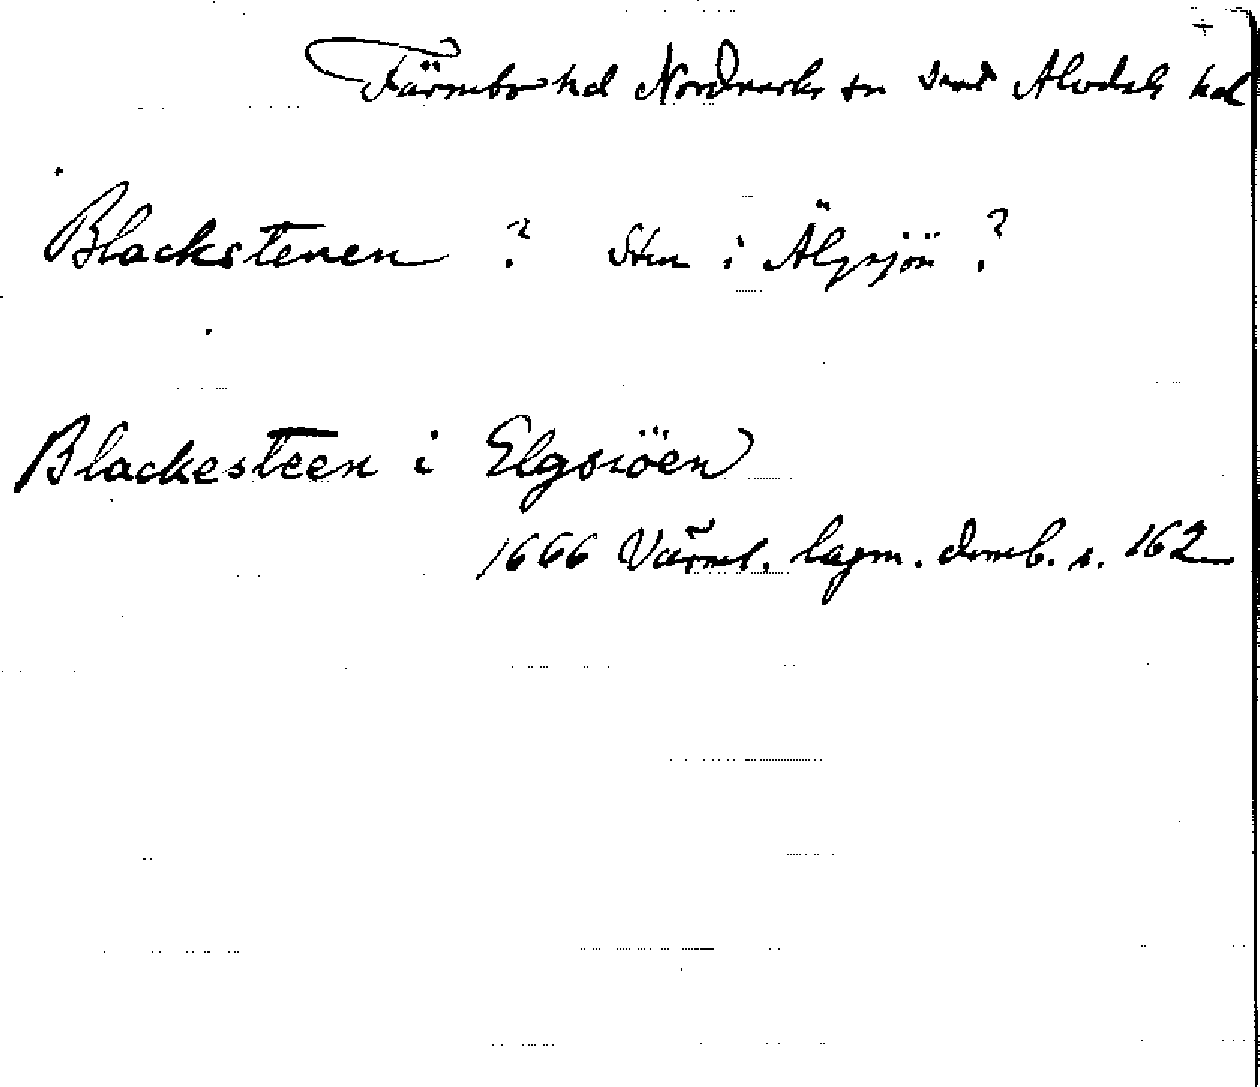 Färnebo hd Nordmarks sn samt Älvdals hd
Blackstenen ? Sten i Älgsjön ?
Blackesteen i Elgsiöen
1666 Värml. lagm. domb. s. 162